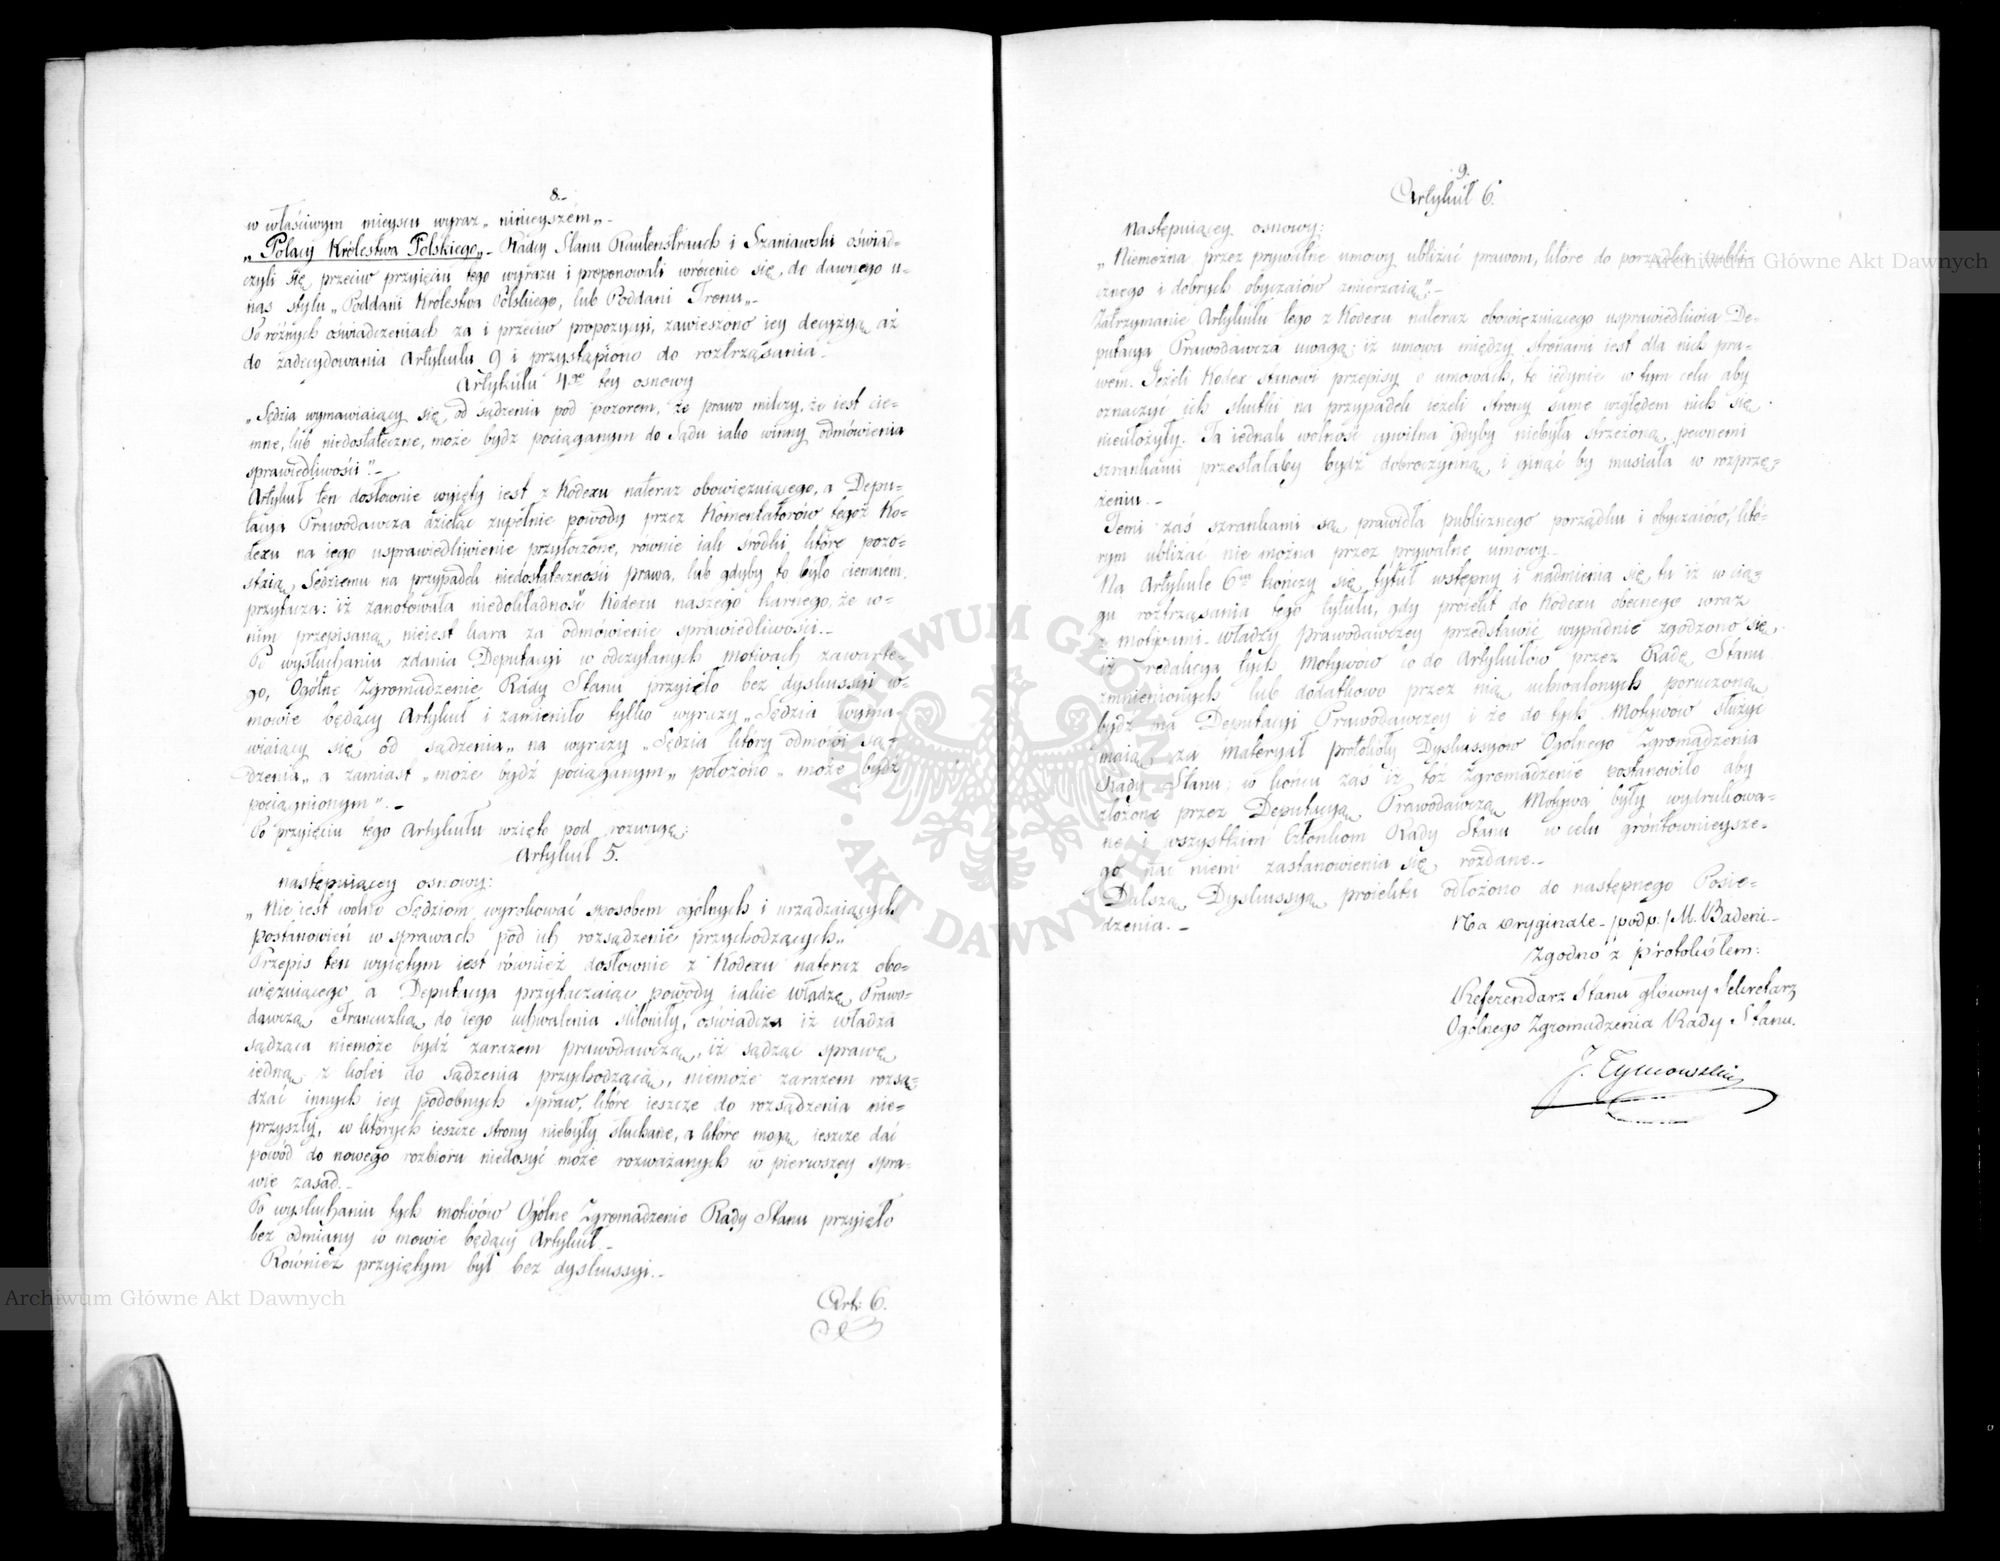 8.-
w właściwym mieyscu wyraz „ninieyszém„-
„Polacy Królestwa Polskiego„- Radcy Stanu Rautenstrauch i Szaniawski oświad-
czyli się przeciw przyięciu tego wyrazu i proponowali wrócenie się, do dawnego u-
nas stylu „Poddani Królestwa Polskiego, lub Poddani Tronu„-
Po różnych oświadczeniach za i przeciw propozycyi, zawieszono iey decyzyą aż
do zadecydowania Artykułu 9 i przystąpiono do roztrząsania-
Artykułu 4go tey osnowy
„Sędzia wymawiaiący się od sądzenia pod pozorem, że prawo milczy, że iest cie-
mne, lub niedostateczne, może bydź pociąganym do Sądu iako winny odmówienia
sprawiedliwości”.-
Artykuł ten dosłownie wyięty iest z Kodexu nateraz obowięzuiącego, a Depu-
tacya Prawodawcza dzieląc zupełnie powody przez Komentatorów tegoż Ko-
dexu na iego usprawiedliwienie przytoczone, równie iak srodki które pozo-
staią Sędziemu na przypadek niedostateczności prawa, lub gdyby to było ciemnem,
przytacza: iż zanotowała niedokładność Kodexu naszego karnego, że w-
nim przepisaną nieiest kara za odmówienie sprawiedliwości.-
Po wysłuchaniu zdania Deputacyi w odczytanych motivach zawarte-
go, Ogólne Zgromadzenie Rady Stanu przyięło bez dyskussyi w-
mowie będący Artykuł i zamieniło tylko wyrazy „Sędzia wyma-
wiaiący się od sądzenia„ na wyrazy „Sędzia który odmówi są-
dzenia„ a zamiast „może bydź pociąganym„ położono „może bydź
pociągnionym”.-
Po przyięciu tego Artykułu wzięto pod rozwagę:
Artykuł 5.
następuiącey osnowy:
„Nie iest wolno Sędziom wyrokować sposobem ogólnych i urządzaiących
postanowień w sprawach pod ich rozsądzenie przychodzących„
Przepis ten wyiętym iest również dosłownie z Kodexu nateraz obo-
więzuiącego a Deputacya przytaczaiąc powody iakie władzę Prawo-
dawczą Francuzką do iego uchwalenia skłoniły, oświadcza iż władza
sądząca niemoże bydź zarazem prawodawczą, iż sądząc sprawę
iedną z kolei do sądzenia przychodzącą, niemoże zarazem rozsą-
dzać innych iey podobnych spraw, które ieszcze do rozsądzenia nie-
przyszły, w których ieszcze strony niebyły słuchane, a które mogą ieszcze dać
powód do nowego rozbioru niedosyć może rozważanych w pierwszey spra-
wie zasad.-
Po wysłuchaniu tych motivów Ogólne Zgromadzenie Rady Stanu przyięło
bez odmiany w mowie będący Artykuł-
Również przyiętym był bez dyskussyi.-
Art: 6.
9.
Artykuł 6.
następuiącey osnowy:
„Niemożna przez prywatne umowy ubliżać prawom, które do porządku publi-
cznego i dobrych obyczaiów zmierzaią”.-
Zatrzymanie Artykułu tego z Kodexu nateraz obowięzuiącego usprawiedliwia De-
putacya Prawodawcza uwagą; iż umowa między stronami iest dla nich pra-
wem. Jeżeli Kodex stanowi przepisy o umowach, to iedynie w tym celu aby
oznaczyć ich skutki na przypadek ieżeli strony same względem nich się
nieułożyły. Ta iednak wolność cywilna gdyby niebyła strzeżoną pewnemi
szrankami przestałaby bydź dobroczynną i ginąć by musiała w rozprzę-
żeniu.-
Temi zaś szrankami są prawidła publicznego porządku i obyczaiów, któ-
rym ubliżać nie można przez prywatne umowy.-
Na Artykule 6ym kończy się tytuł wstępny i nadmienia się tu iż w cią-
gu roztrząsania tego tytułu, gdy proiekt do Kodexu obecnego wraz
z motivami władzy prawodawczey przedstawić wypadnie zgodzono się,
iż redakcya tych Motywów co do Artykułów przez Radę Stanu
zmienionych lub dodatkowo przez nią uchwalonych poruczoną
bydź ma Deputacyi Prawodawczey i że do tych Motywów służyć
maią za materyał protokóły Dyskussyów Ogólnego Zgromadzenia
Rady Stanu; w końcu zaś iż toż Zgromadzenie postanowiło aby
złożone przez Deputacyą Prawodawczą Motywa były wydrukowa-
ne i wszystkim Członkom Rady Stanu w celu gróntownieysze-
go nad niemi zastanowienia się rozdane.-
Dalszą Dyskussyą proiektu odłożono do następnego Posie-
dzenia.-
Na oryginale-/podp:/ M. Badeni-
Zgodno z protokółem:
Referendarz Stanu główny Sekretarz
Ogólnego Zgromadzenia Rady Stanu.
J. Tymowski
Archiwum Główne Akt Dawnych
Archiwum Główne Akt Dawnych
ARCHIWUM GŁÓWNE AKT DAWNYCH